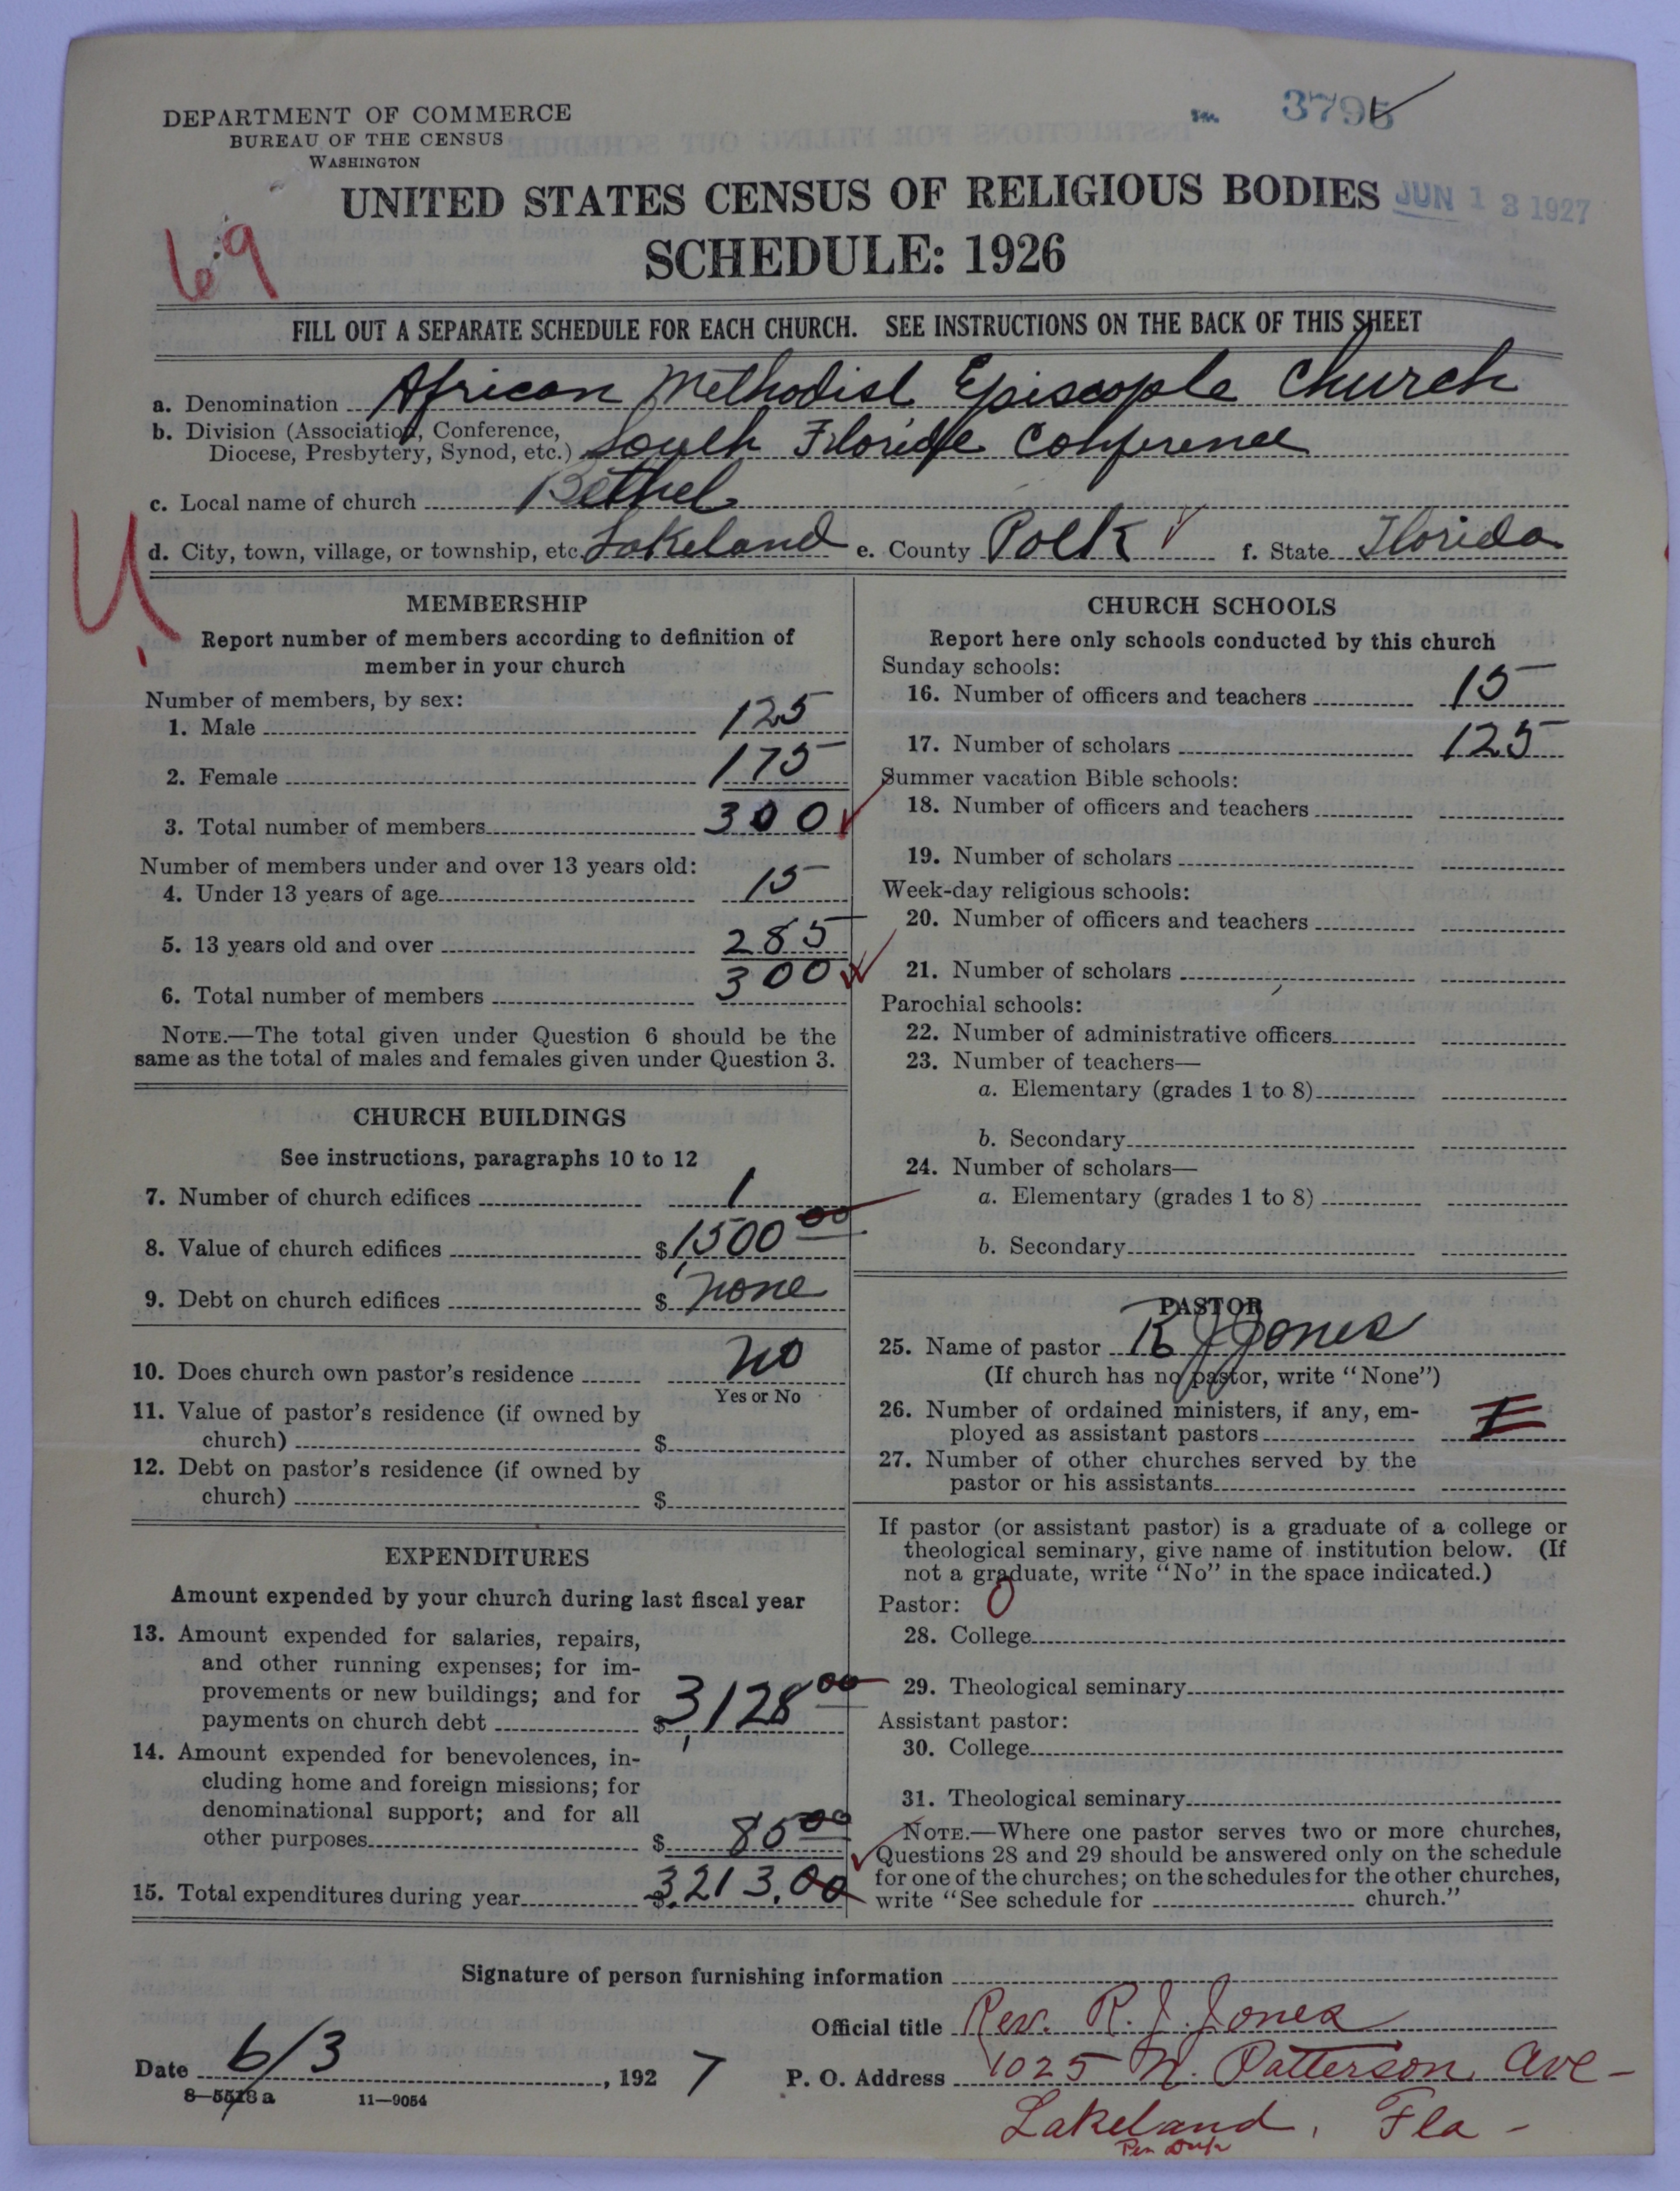 3795
DEPARTMENT OF COMMERCE
BUREAU OF THE CENSUS
WASHINGTON
UNITED STATES CENSUS OF RELIGIOUS BODIES
JUN 13 1927
SCHEDULE: 1926
69
FILL OUT A SEPARATE SCHEDULE FOR EACH CHURCH. SEE INSTRUCTIONS ON THE BACK OF THIS SHEET
a. Denomination African Methodist Episcople Church
b. Division (Association, Conference,
Diocese, Presbytery, Synod, etc.) South Floride Conference
c. Local name of church Bethel
d. City, town, village, or township, etc. Lakeland e. County Polk f. State Florida
U
MEMBERSHIP
Report number of members according to definition of
member in your church
Number of members, by sex:
1. Male 125
2. Female 175
3. Total number of members 300
Number of members under and over 13 years old:
4. Under 13 years of age 15
5. 13 years old and over 285
6. Total number of members 300
NOTE.—The total given under Question 6 should be the
same as the total of males and females given under Question 3.
CHURCH BUILDINGS
See instructions, paragraphs 10 to 12
7. Number of church edifices 1
8. Value of church edifices $1,500 00
9. Debt on church edifices $ none
10. Does church own pastor's residence no
Yes or No
11. Value of pastor's residence (if owned by
church) $
12. Debt on pastor's residence (if owned by
church) $
EXPENDITURES
Amount expended by your church during last fiscal year
13. Amount expended for salaries, repairs,
and other running expenses; for im-
provements or new buildings; and for
payments on church debt $3,128 00
14. Amount expended for benevolences, in-
cluding home and foreign missions; for
denominational support; and for all
other purposes $ 85 00
15. Total expenditures during year $3,213.00
CHURCH SCHOOLS
Report here only schools conducted by this church
Sunday schools:
16. Number of officers and teachers 15
17. Number of scholars 125
Summer vacation Bible schools:
18. Number of officers and teachers
19. Number of scholars
Week-day religious schools:
20. Number of officers and teachers
21. Number of scholars
Parochial schools:
22. Number of administrative officers
23. Number of teachers—
a. Elementary (grades 1 to 8)
b. Secondary
24. Number of scholars—
a. Elementary (grades 1 to 8)
b. Secondary
PASTOR
25. Name of pastor R J Jones
(If church has no pastor, write "None")
26. Number of ordained ministers, if any, em-
ployed as assistant pastors 1
27. Number of other churches served by the
pastor or his assistants
If pastor (or assistant pastor) is a graduate of a college or
theological seminary, give name of institution below. (If
not a graduate, write "No" in the space indicated.)
Pastor: 0
28. College
29. Theological seminary
Assistant pastor:
30. College
31. Theological seminary
NOTE.—Where one pastor serves two or more churches,
Questions 28 and 29 should be answered only on the schedule
for one of the churches; on the schedules for the other churches,
write "See schedule for church."
Signature of person furnishing information
Official title Rev. R. J. Jones
Date 6/3, 1927 P. O. Address 1025 N. Patterson Ave
8—5518 a 11—9054
Lakeland, Fla